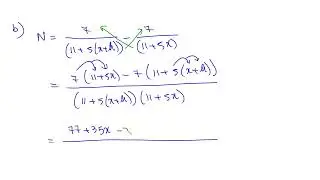 b) N = 7/(11+5(x+h)) - 7/(11+5x)
= (7(11+5x) - 7(11+5(x+h)))/((11+5(x+h))(11+5x))
= 77+35x -